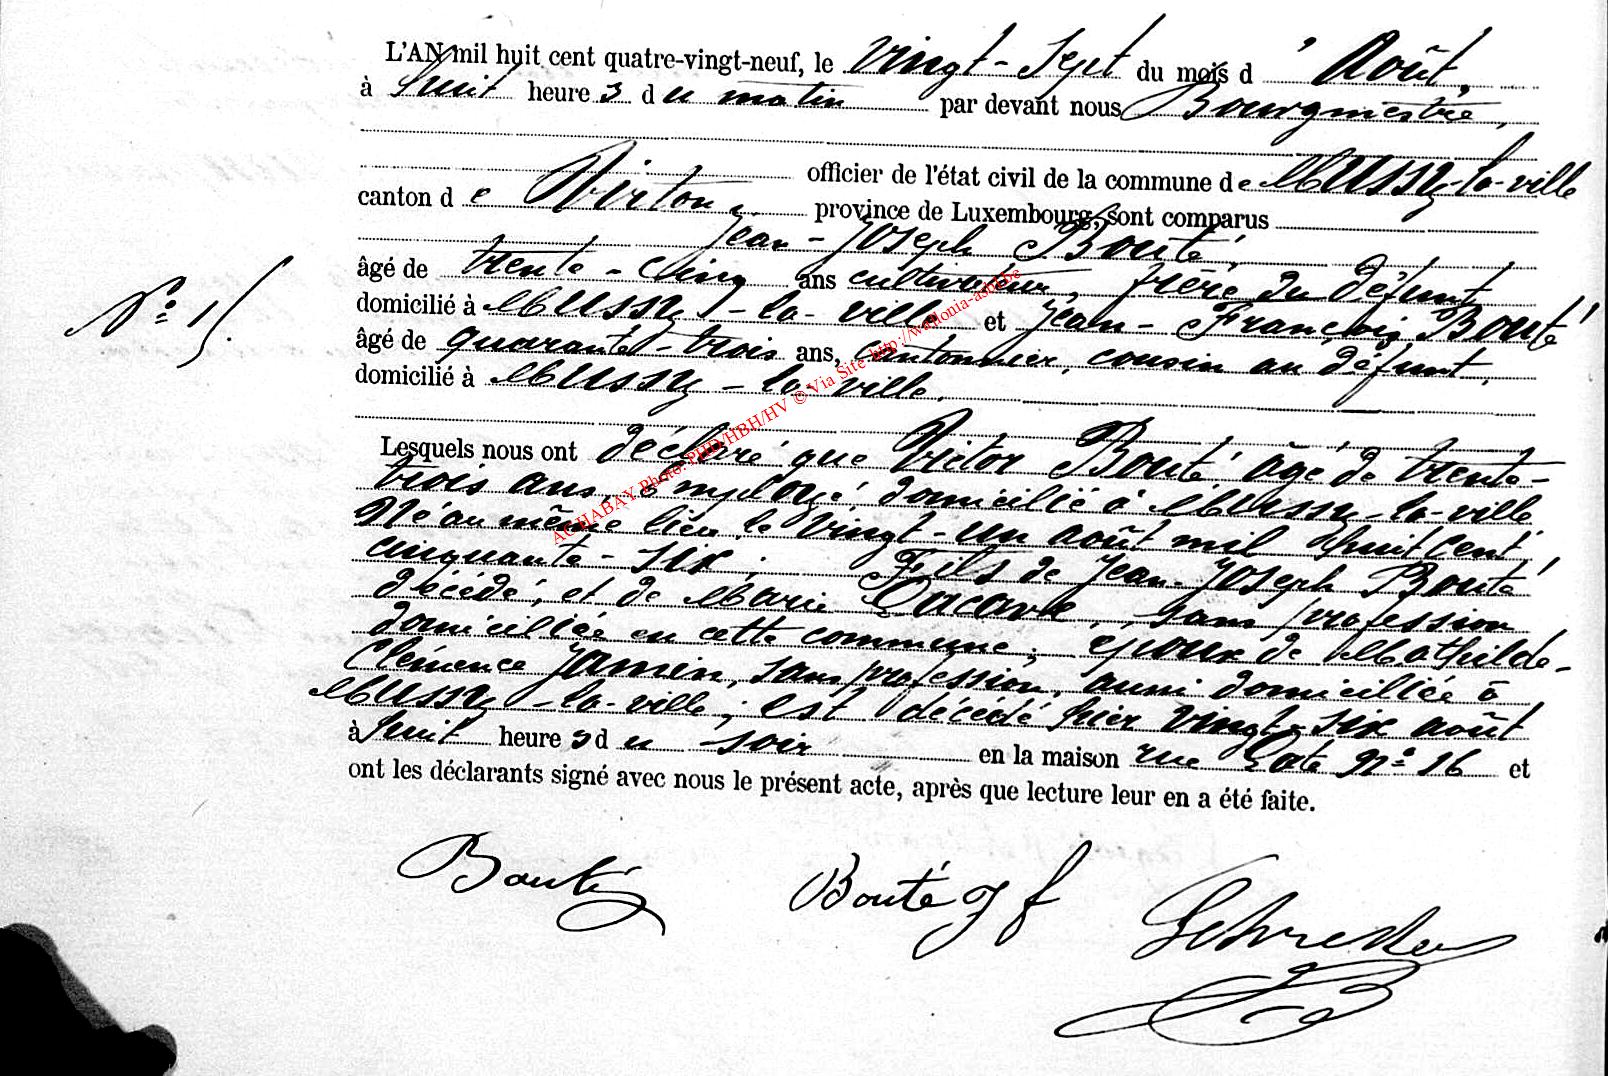 L'AN mil huit cent quatre-vingt-neuf, le vingt-sept du mois d'Août,
à huit heures du matin par devant nous Bourgmestre,
officier de l'état civil de la commune de Mussy-la-ville
canton de Virton, province de Luxembourg, sont comparus
Jean-Joseph Bouté,
âgé de trente-cinq ans cultivateur, frère du défunt
domicilié à Mussy-la-ville et Jean-François Bouté
N° 15.
âgé de quarante-trois ans, cantonnier, cousin au défunt,
domicilié à Mussy-la-ville.
Lesquels nous ont déclaré que Victor Bouté âgé de trente-
trois ans, employé domicilié à Mussy-la-ville
Né au même lieu le vingt-un août mil huit cent
cinquante-six; Fils de Jean-Joseph Bouté
décédé, et de Marie Lacave, sans profession
domiciliée en cette commune; époux de Mathilde-
Clémence Jamin, sans profession, aussi domiciliée à
Mussy-la-ville; est décédé hier vingt-six août
à huit heures du soir en la maison rue n° 16 et
ont les déclarants signé avec nous le présent acte, après que lecture leur en a été faite.
Bouté Bouté J f
AGHABAY Photo: PHD/HBH/HV © Via Site http://wallonia-asbl.be